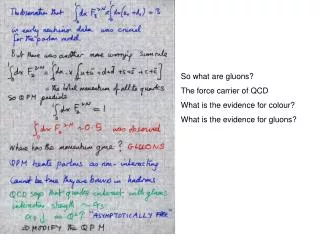 The observation that ∫ dx F₃^νN = ∫ dx (u_v + d_v) = 3
in early neutrino data was crucial
for the parton model
But there was another more worrying sum rule
∫ dx F₂^νN = ∫ dx x [u+ū + d+d̄ + s+s̄ + c+c̄]
= the total momentum of all the quarks
So QPM predicts
∫ dx F₂^νN = 1
∫ dx F₂^νN ~ 0.5 was observed
Where has the momentum gone? GLUONS
QPM treats partons as non-interacting
Cannot be true they are bound in hadrons
QCD says that quarks interact with gluons
interaction strength ~ αs
αs ↓ as Q² ↑ "ASYMPTOTICALLY FREE"
⇒ MODIFY the QPM
So what are gluons?
The force carrier of QCD
What is the evidence for colour?
What is the evidence for gluons?